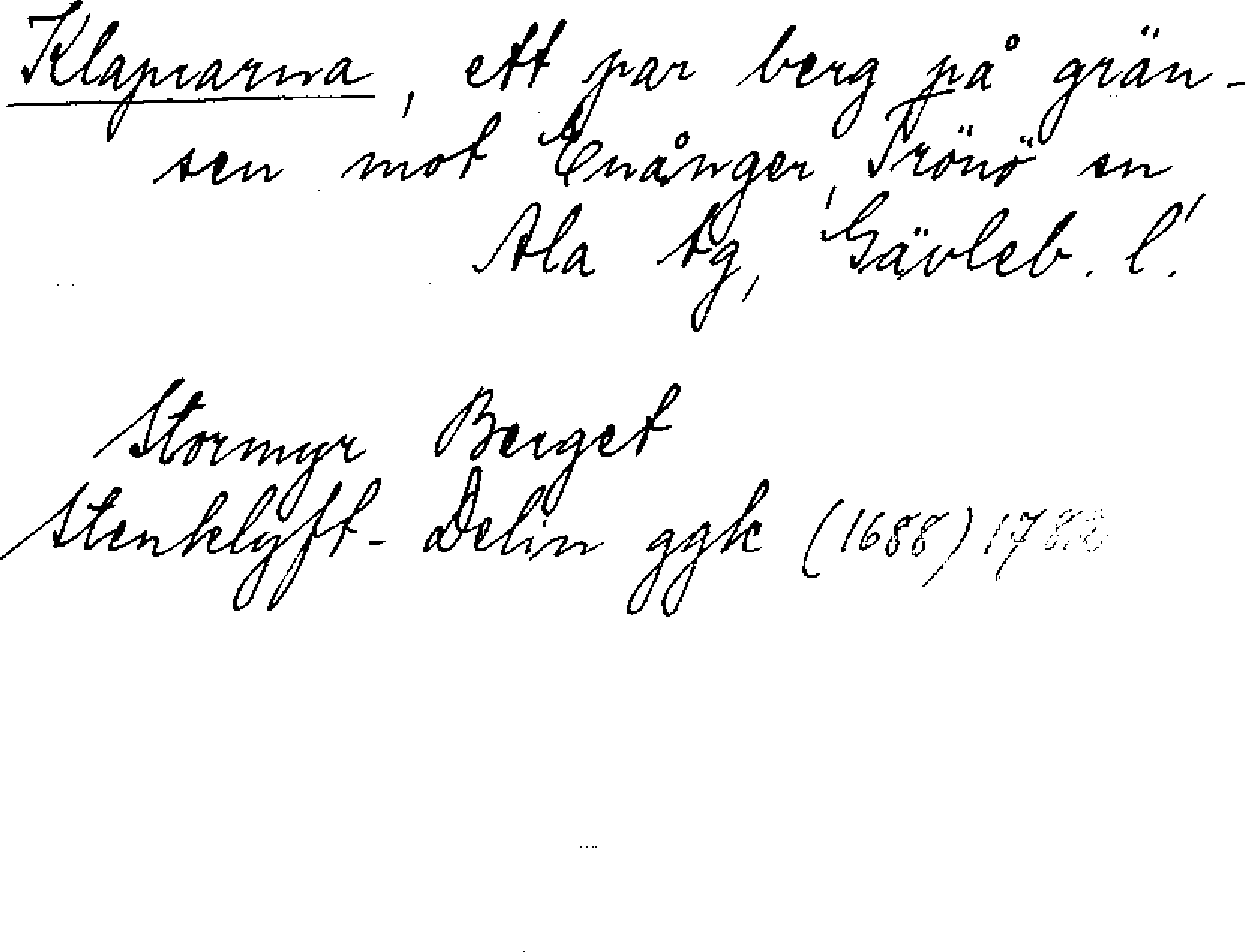 Klaparna, ett par berg på grän-
sen mot Enånger, Trönö sn,
Ala tg, Gävleb. l.
Stormyr Berget
Stenklyft- Delin ggk (1688)